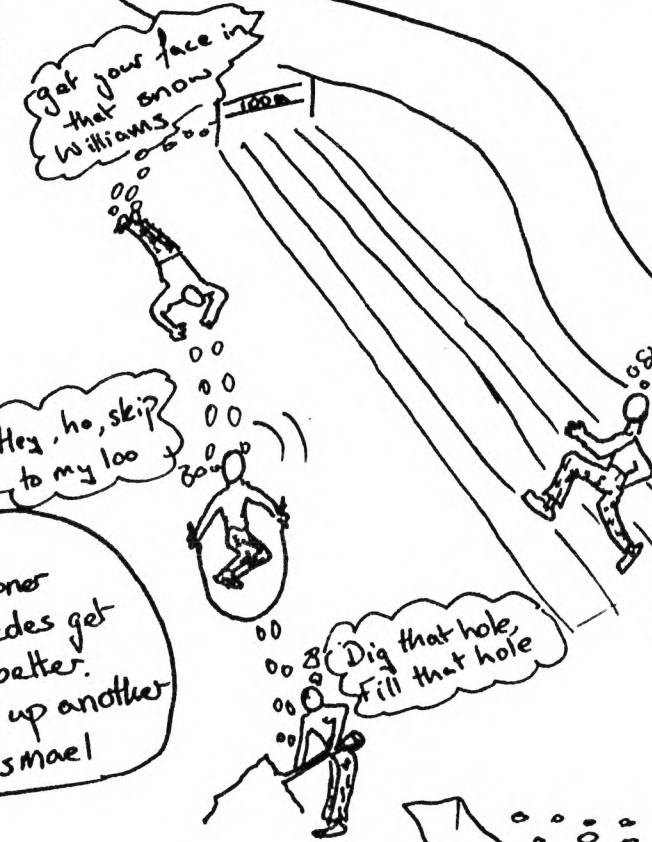 get your face in
that snow
Williams
100m
Hey, ho, skip
to my loo
get
better.
up another
Dig that hole,
Fill that hole